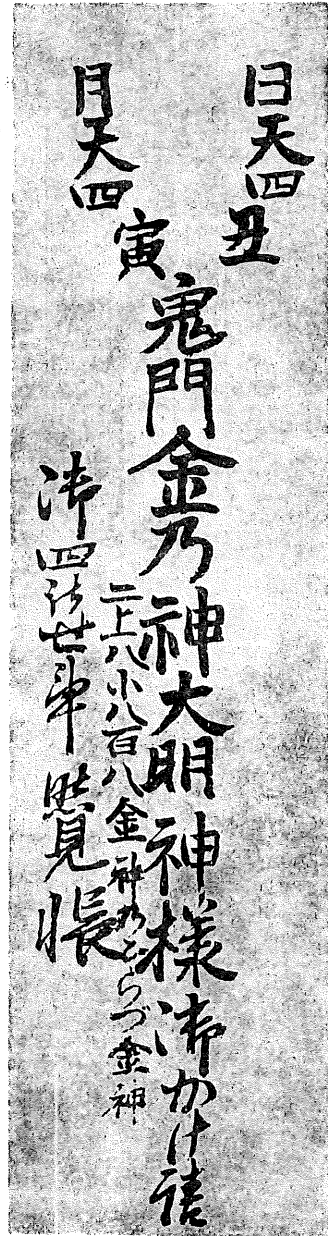 日天四
丑
月天四
寅
鬼門金乃神大明神様御かけ
二上八小八百八金神乃こらづ金神
御四 世 覚帳